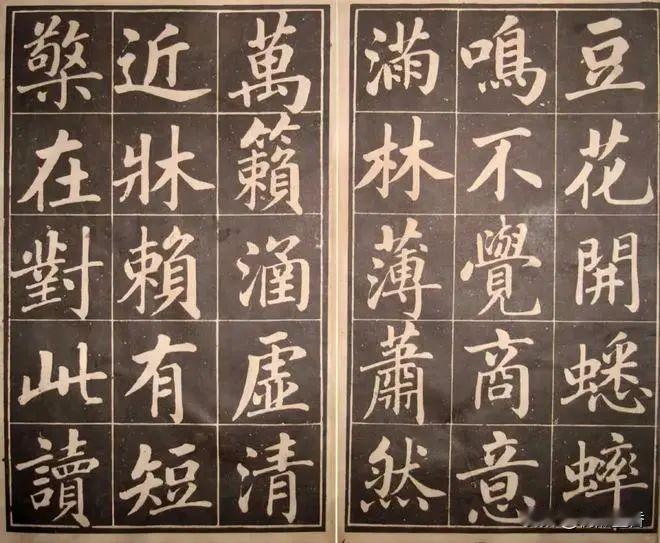 豆花開蟋蟀
鳴不覺商意
滿林薄蕭然
萬籟涵虛清
近牀賴有短
檠在對此讀